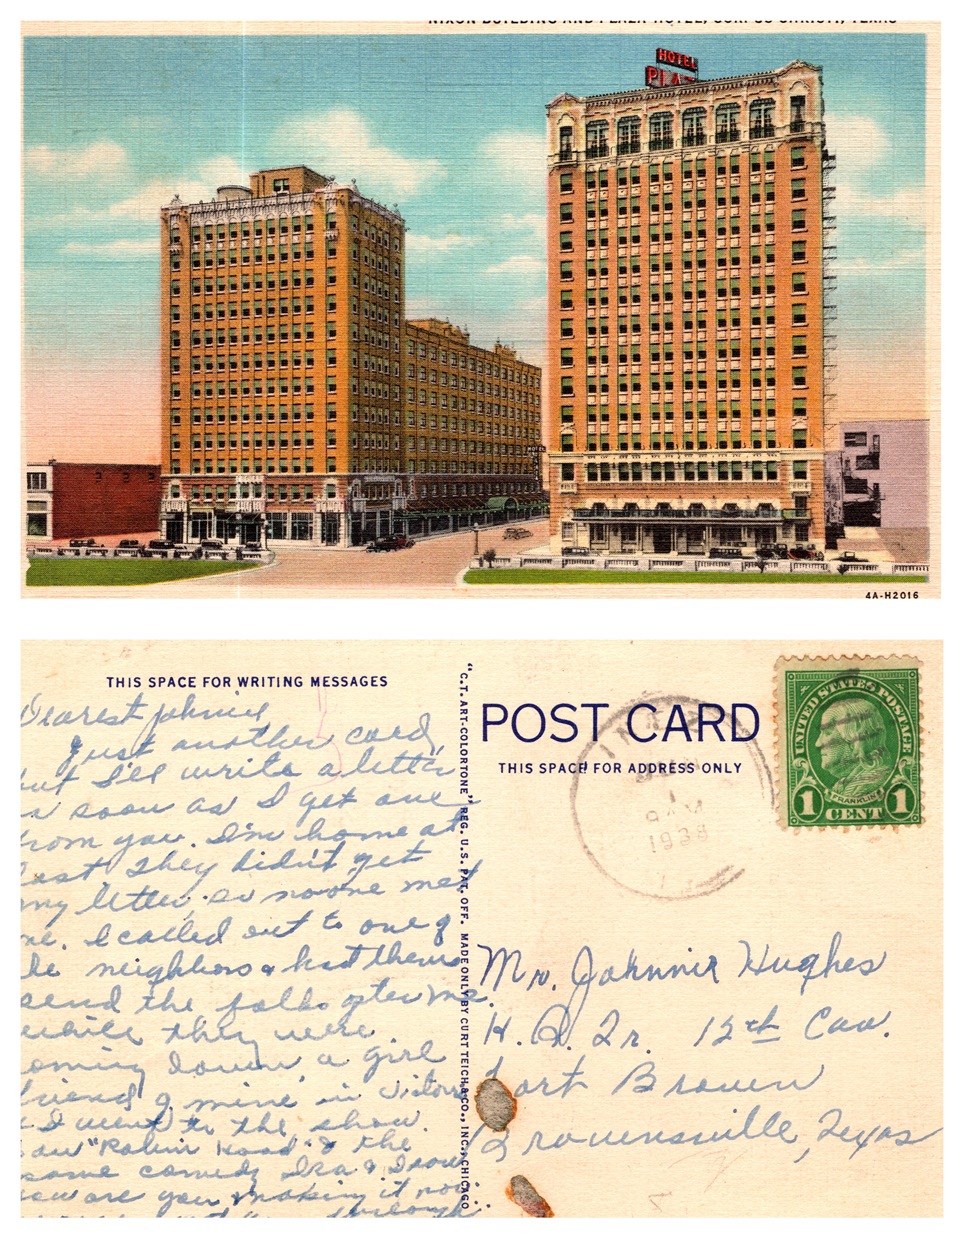 NIXON BUILDING AND PLAZA HOTEL, CORPUS CHRISTI, TEXAS
HOTEL
PLAZ
HOTEL
4A-H2016
THIS SPACE FOR WRITING MESSAGES
Dearest Johnie
Just another card,
but I'll write a letter
as soon as I get one
from you. I'm home at
last They didn't get
my letter so no one met
me. I called out to one of
he neighbors & had them
send the folks after me.
while they were
oming down a girl
friend of mine in Victoria
& I went to the show.
saw "Robin Hood" & the
same comedy Ira & I saw.
How are you making it now.
through
"C.T. ART-COLORTONE" REG. U.S. PAT. OFF. MADE ONLY BY CURT TEICH & CO., INC., CHICAGO.
POST CARD
THIS SPACE FOR ADDRESS ONLY
1
9 AM
1938
UNITED STATES POSTAGE
FRANKLIN
1 CENT 1
Mr. Johnnie Hughes
H. Q. Tr. 12th Cav.
Fort Brown
Brownsville, Texas